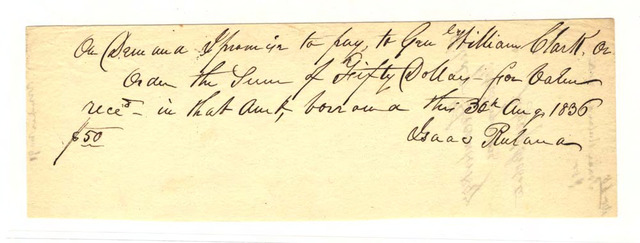 On Demand I promise to pay, to Genl William Clark, or
Order the Sum of Fifty Dollars – for value
recd – in that Amt, borrowed this 30th Augt 1836
$50 Isaac